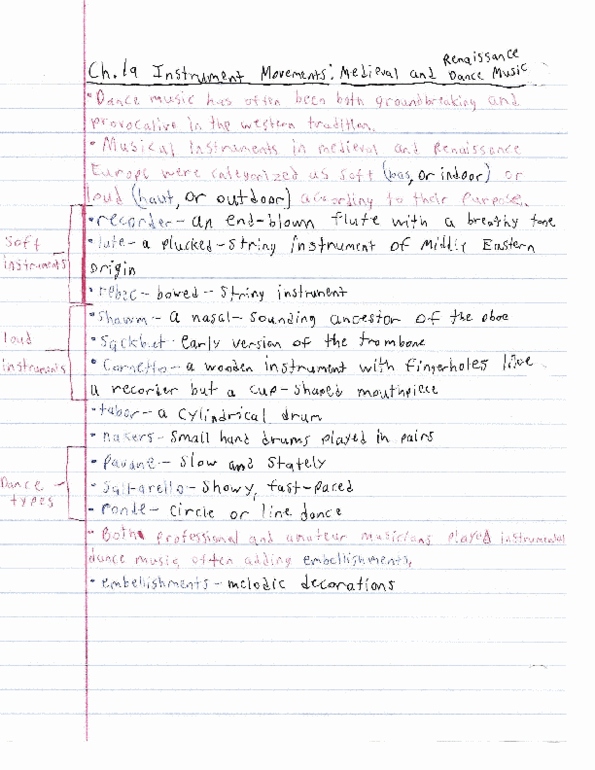 Renaissance
Ch. 19 Instrument Movements: Medieval and Dance Music
• Dance music has often been both groundbreaking and
provocalive in the western tradition.
• Musical Instruments in medieval and Renaissance
Europe were categorized as soft (bas, or indoor) or
loud (haut, or outdoor) according to their purpose.
• recorder - an end-blown flute with a breathy tone
Soft instruments
• lute - a plucked-string instrument of Middle Eastern
origin
• rebec - bowed - string instrument
• shawm - a nasal-sounding ancestor of the oboe
loud instruments
• Sackbut - early version of the trombone
• Cornetto - a wooden instrument with fingerholes like
a recorder but a cup-shaped mouthpiece
• tabor - a cylindrical drum
• nakers - small hand drums played in pairs
• pavane - slow and stately
Dance types
• Saltarello - showy, fast-paced
• ronde - circle or line dance
• Both professional and amateur musicians played instrumental
dance music, often adding embellishments.
• embellishments - melodic decorations